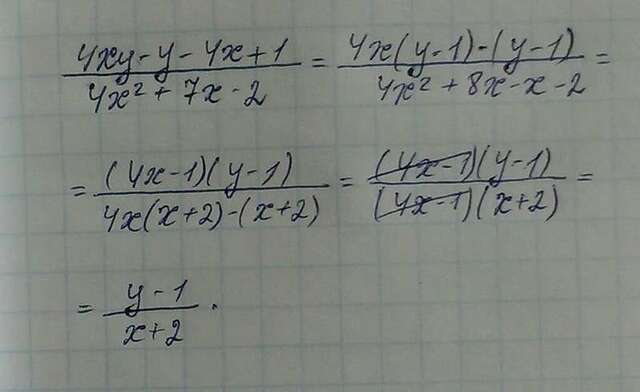 (4xy - y - 4x + 1)/(4x² + 7x - 2) = (4x(y-1) - (y-1))/(4x² + 8x - x - 2) =
= ((4x-1)(y-1))/(4x(x+2) - (x+2)) = ((4x-1)(y-1))/((4x-1)(x+2)) =
= (y-1)/(x+2) .